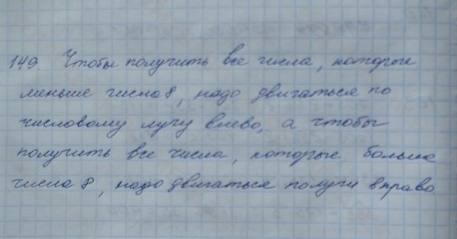 149. Чтобы получить все числа, которые
меньше числа 8, надо двигаться по
числовому лучу влево, а чтобы
получить все числа, которые больше
числа 8, надо двигаться по лучу вправо